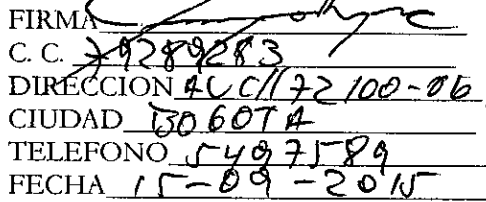 FIRMA
C. C. 79289283
DIRECCION AV Cll 72 100-06
CIUDAD BOGOTA
TELEFONO 5497589
FECHA 15-09-2015